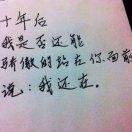 十年后
我是否还能
骄傲的站在你面前
说：我还在。